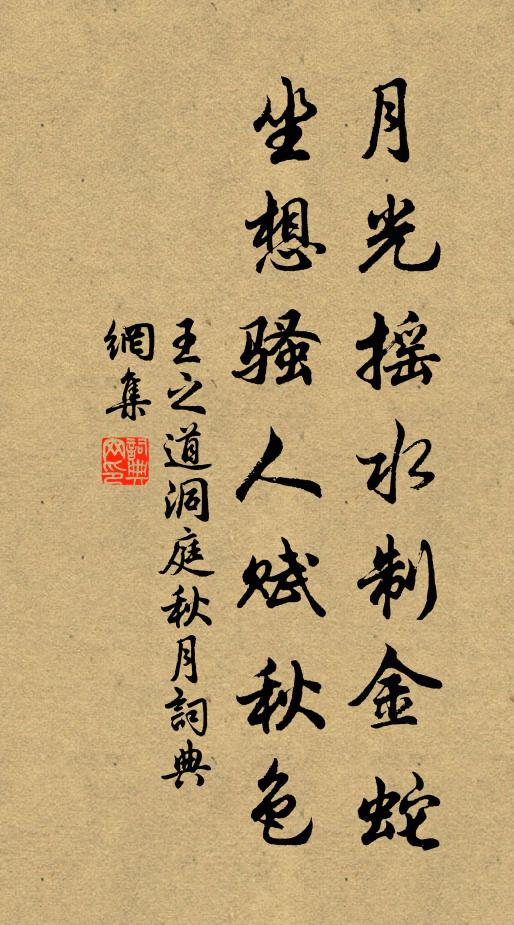 月光摇水制金蛇
坐想骚人赋秋色
王之道洞庭秋月詞典
網集
詞典
网印